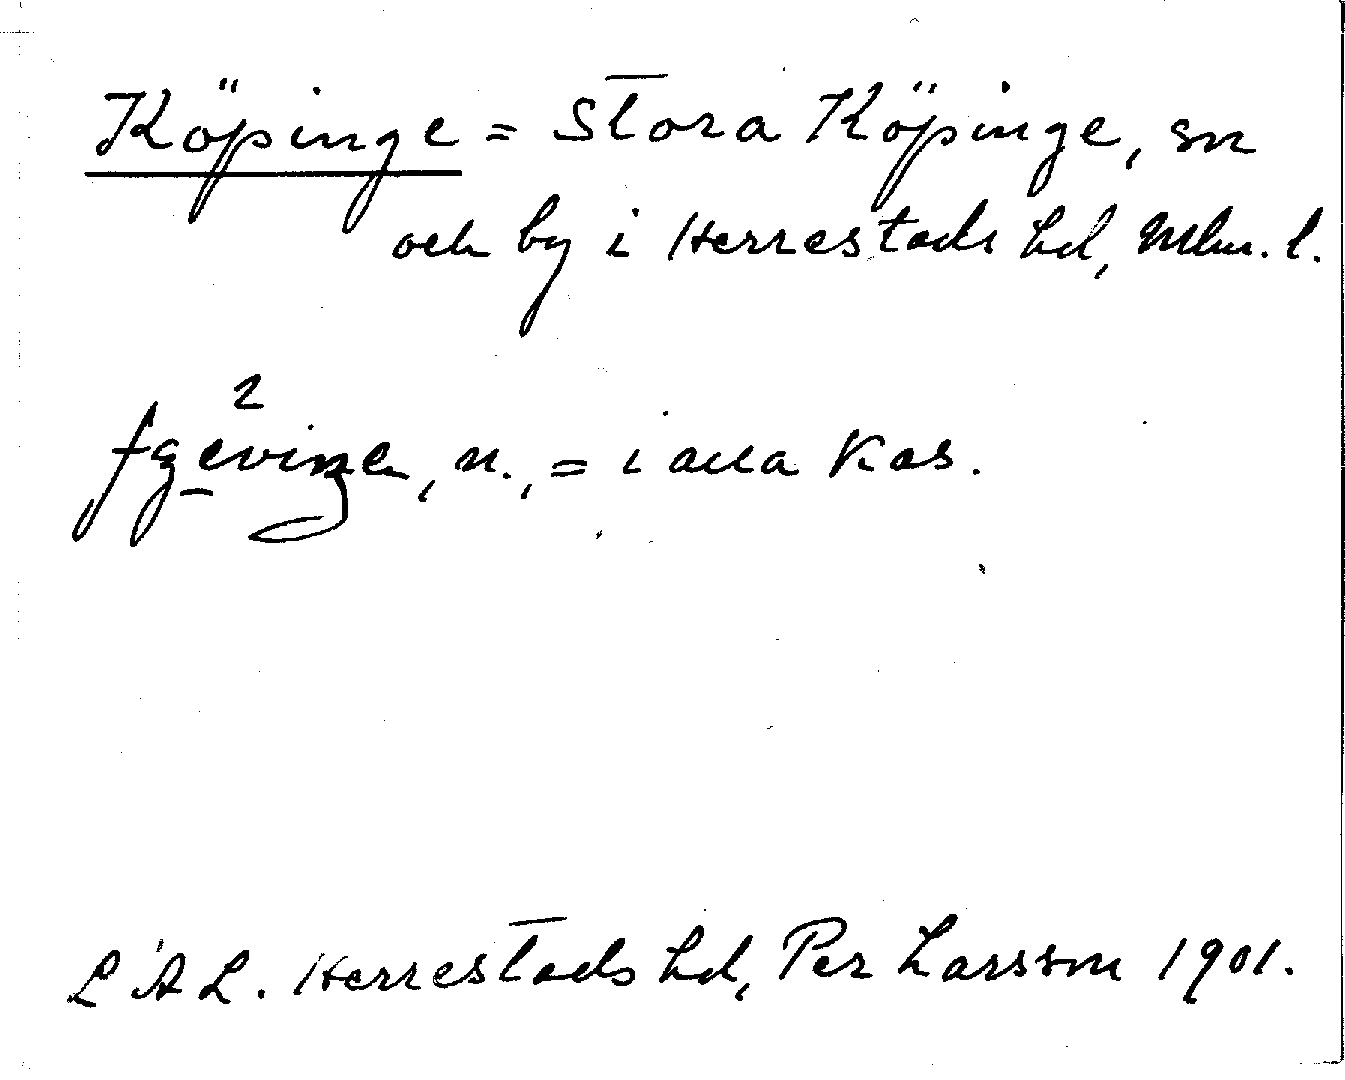 Köpinge = Stora Köpinge, sn
och by i Herrestads hd, Mlm. l.
n., = i alla kas.
LAL. Herrestads hd, Per Larsson 1901.